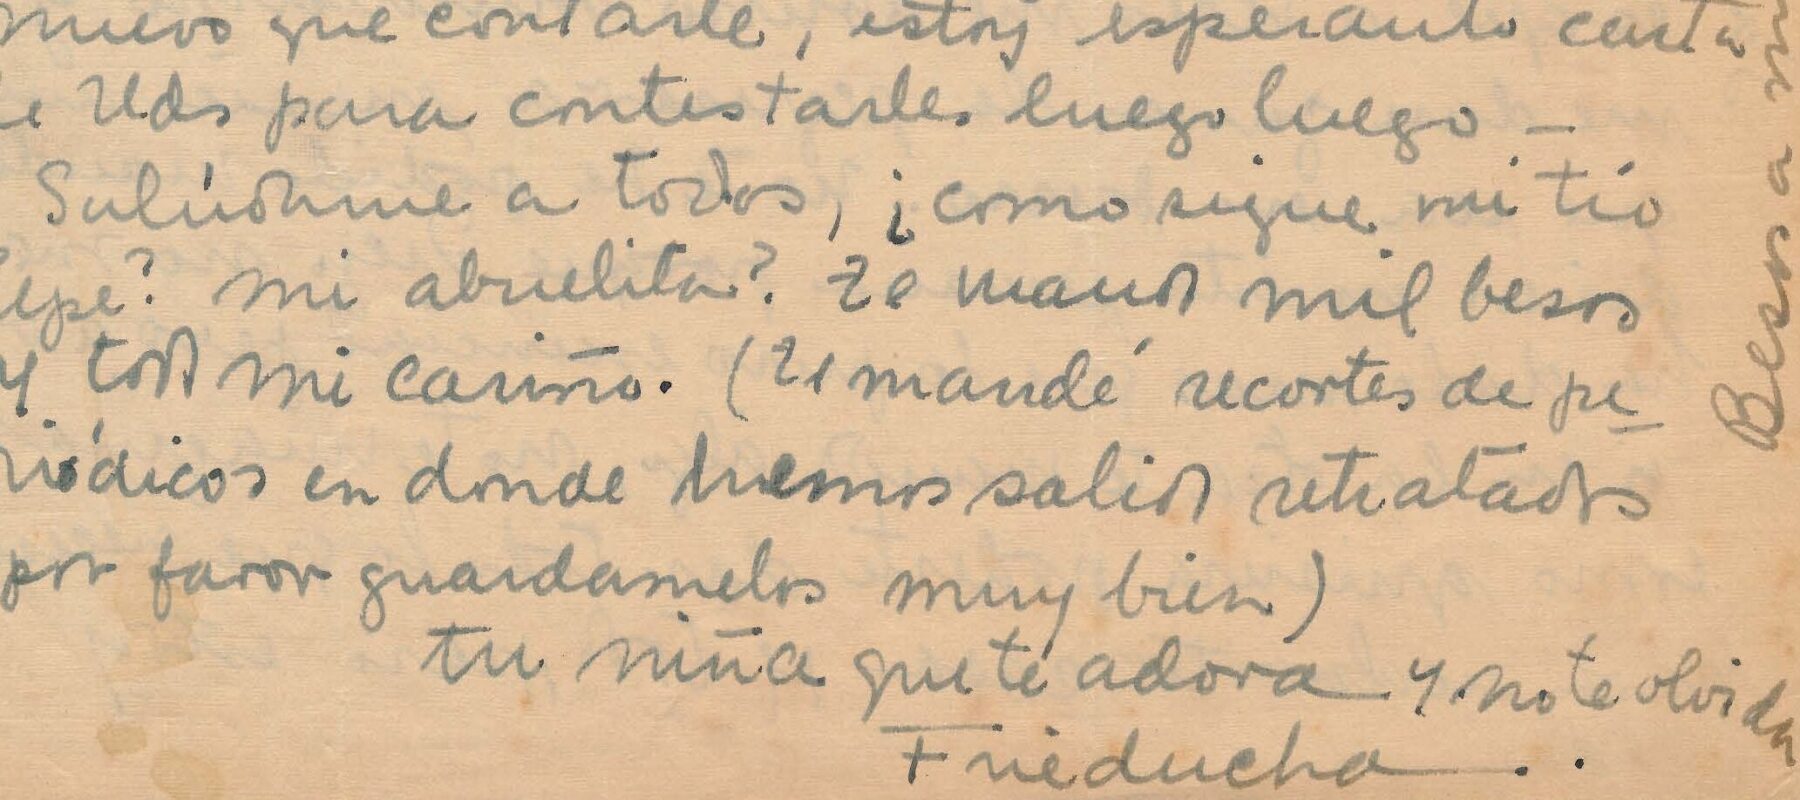 nuevo que contarle, estoy esperando carta
de Uds para contestarles luego luego –
Salúdame a todos, ¿como sigue mi tío
Pepe? mi abuelita? Te mando mil besos
y todo mi cariño. (Te mandé recortes de pe
riódicos en donde hemos salido retratados
por favor guardamelos muy bien)
tu niña que te adora y no te olvida
Frieducha . .
Besos a